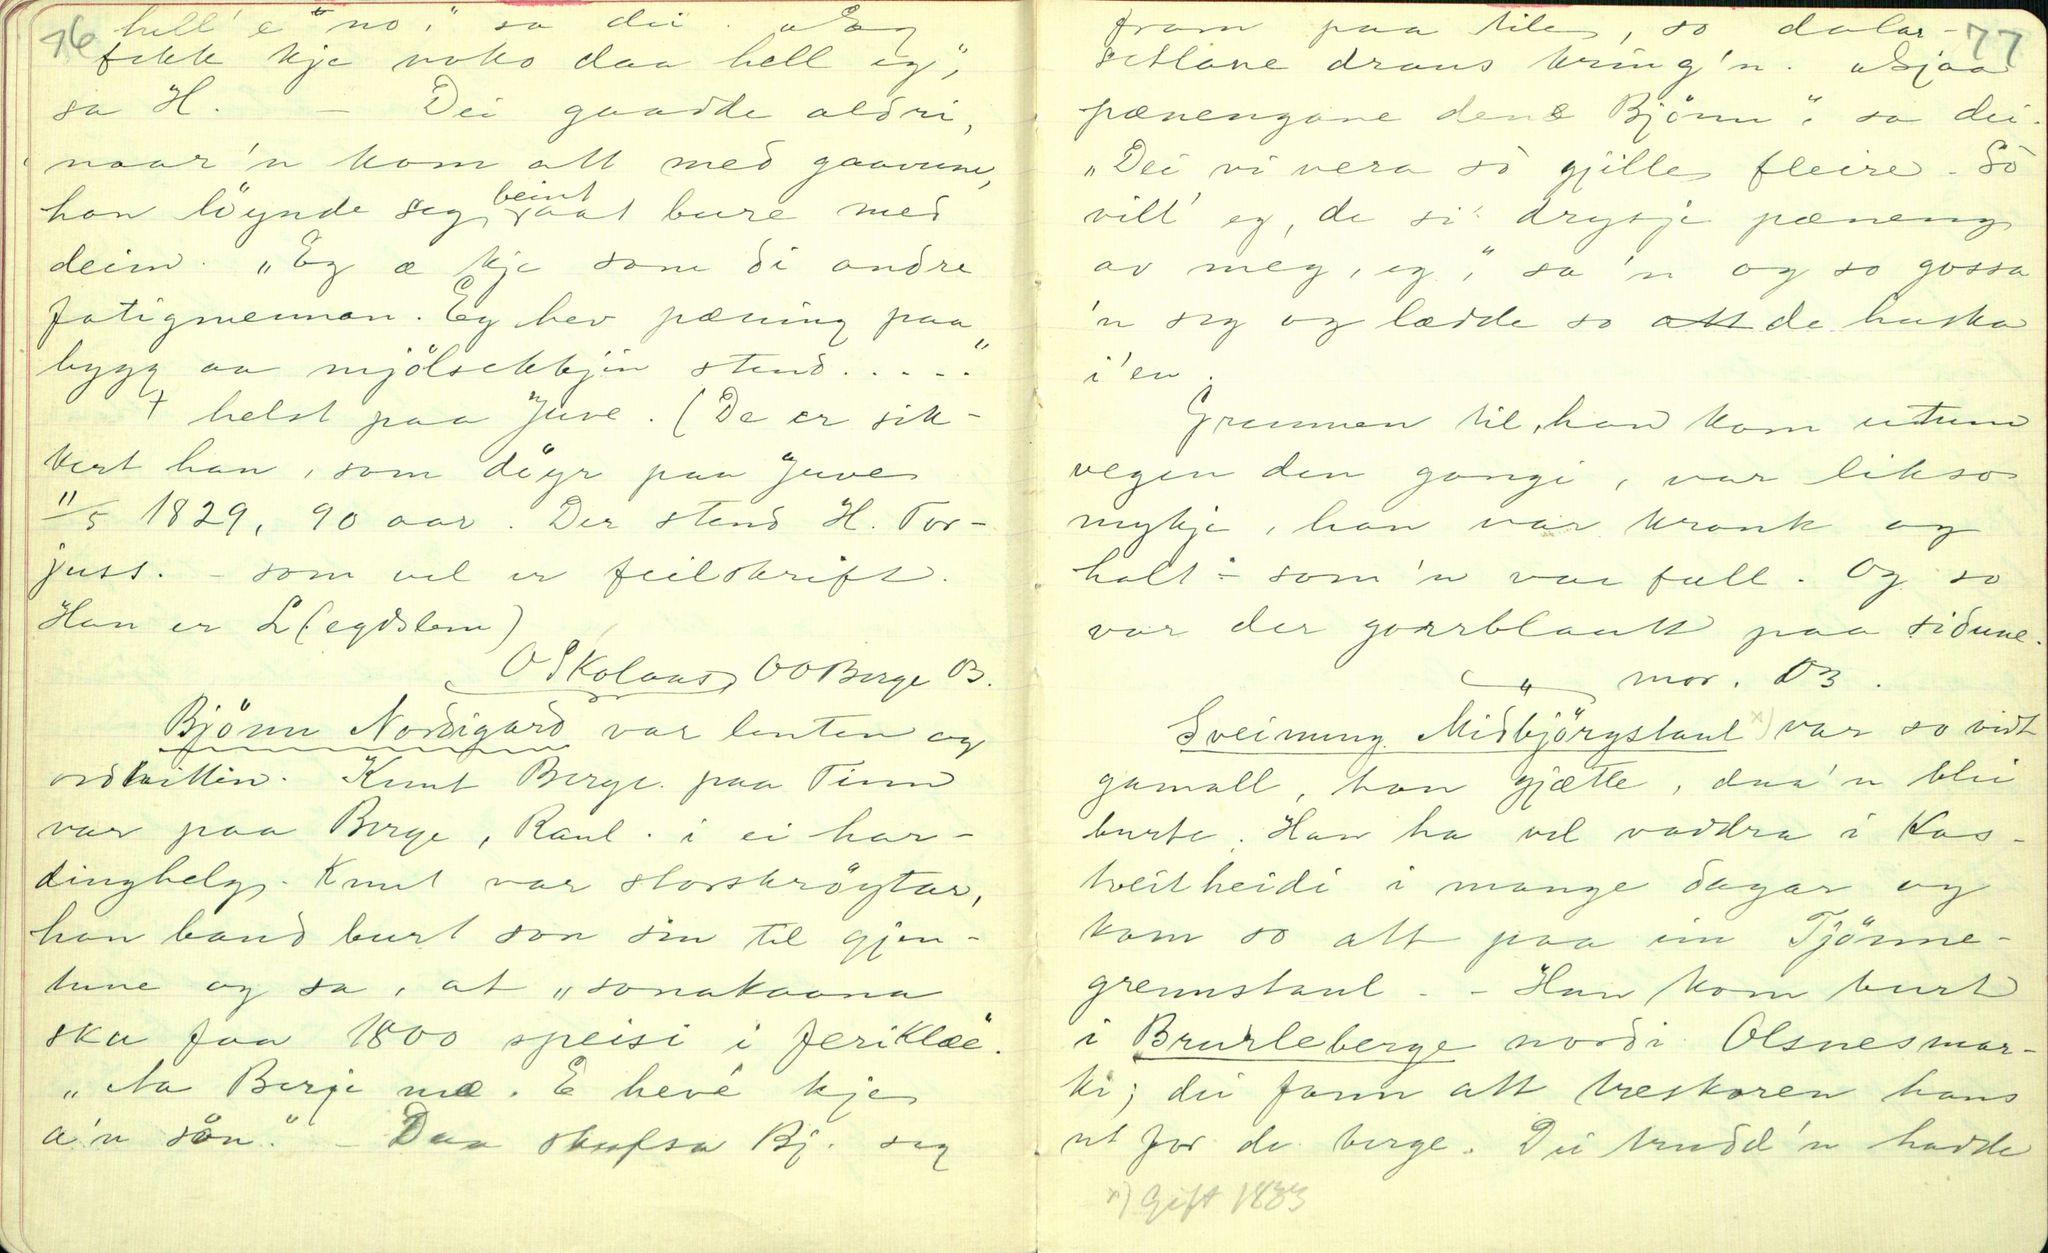 76
hell' e "no," sa dei. "Eg
fekk kje noko daa hell eg",
sa H. — Dei gaadde aldri,
naar'n kom att med gaavune,
han löynde seg beint aat bure med
deim. "Eg æ kje som di andre
fatigmennan. Eg hev pæning paa
bygg aa mjölsekkjin stend....."
+ helst paa Juve. (De er sik-
kert han, som döyr paa Juve
11/5 1829, 90 aar. Der stend H. Tor-
juss. - som vel er feilskrift.
Han er L(egdslem)
O Skolaas, OO Berge B.
Björnn Nordigard var lenten og
ordhittin. Knut Berge paa Tinn
var paa Berge, Raul. i ei har-
dinghelg. Knut var storskröytar,
han baud burt son sin til gjen-
tune og sa, at "sonakaana
ska faa 1800 speisi i feriklæe".
"Aa Berje mæ. E heve kje
a'n sön." - Daa skufsa Bj. seg
77
fram paa tile, so dalar-
setlane draus kring'n. "Sjaa
pænengane dens Björnn", sa dei.
"Dei vi vera so gjille fleire. So
vill' eg, de si' drysje pæneng
av meg, eg", sa'n og so gossa
'n seg og lædde so att de huska
i'en.
Grannen til, han kom utum
vegen den gongi, var likso
mykje, han var krank og
halt - som'n var full. Og so
var der gorrblautt paa sidune.
" mor. OB.
Sveinung Midbjörgstaul x) var so vidt
gamall, han gjætte, daa'n blei
burte. Han ha vel vaddra i Kos-
tveitheidi i mange dagar og
kom so att paa ein Tjönne-
grennstaul. - Han kom burt
i Brurleberge nordi Olsnesmar-
ki; dei fann att treskoren hans
ut for de berge. Dei trudd'n hadde
x) Gift 1833